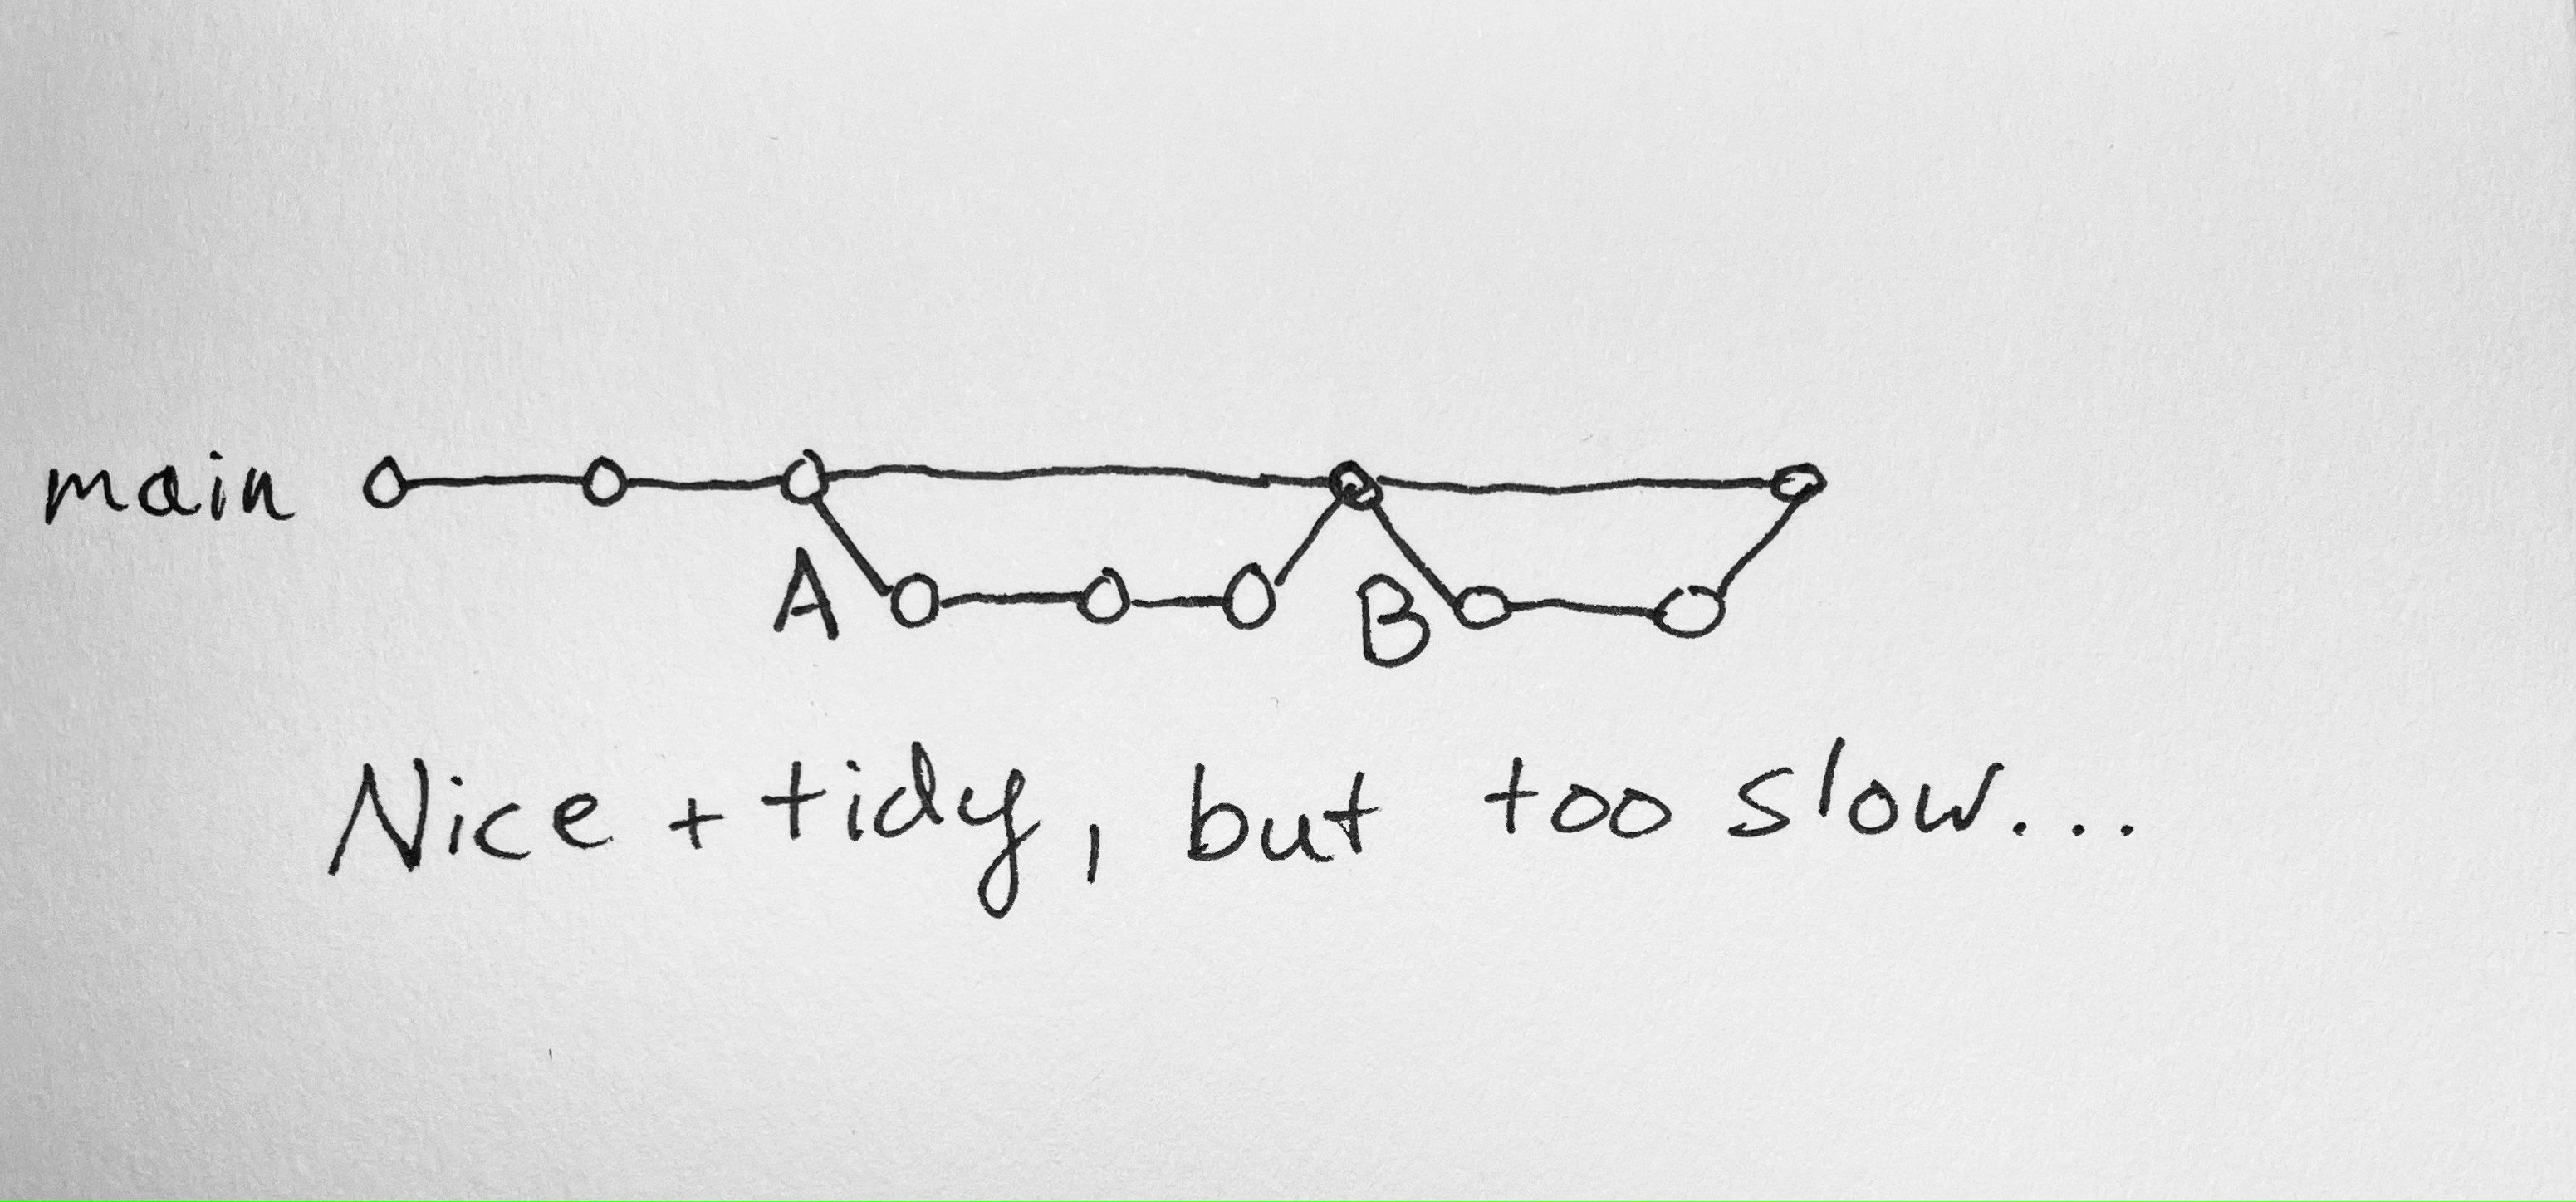 main
A
B
Nice + tidy, but too slow...